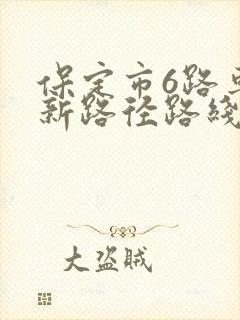 保定市6路
新路径路綫
大盗贼